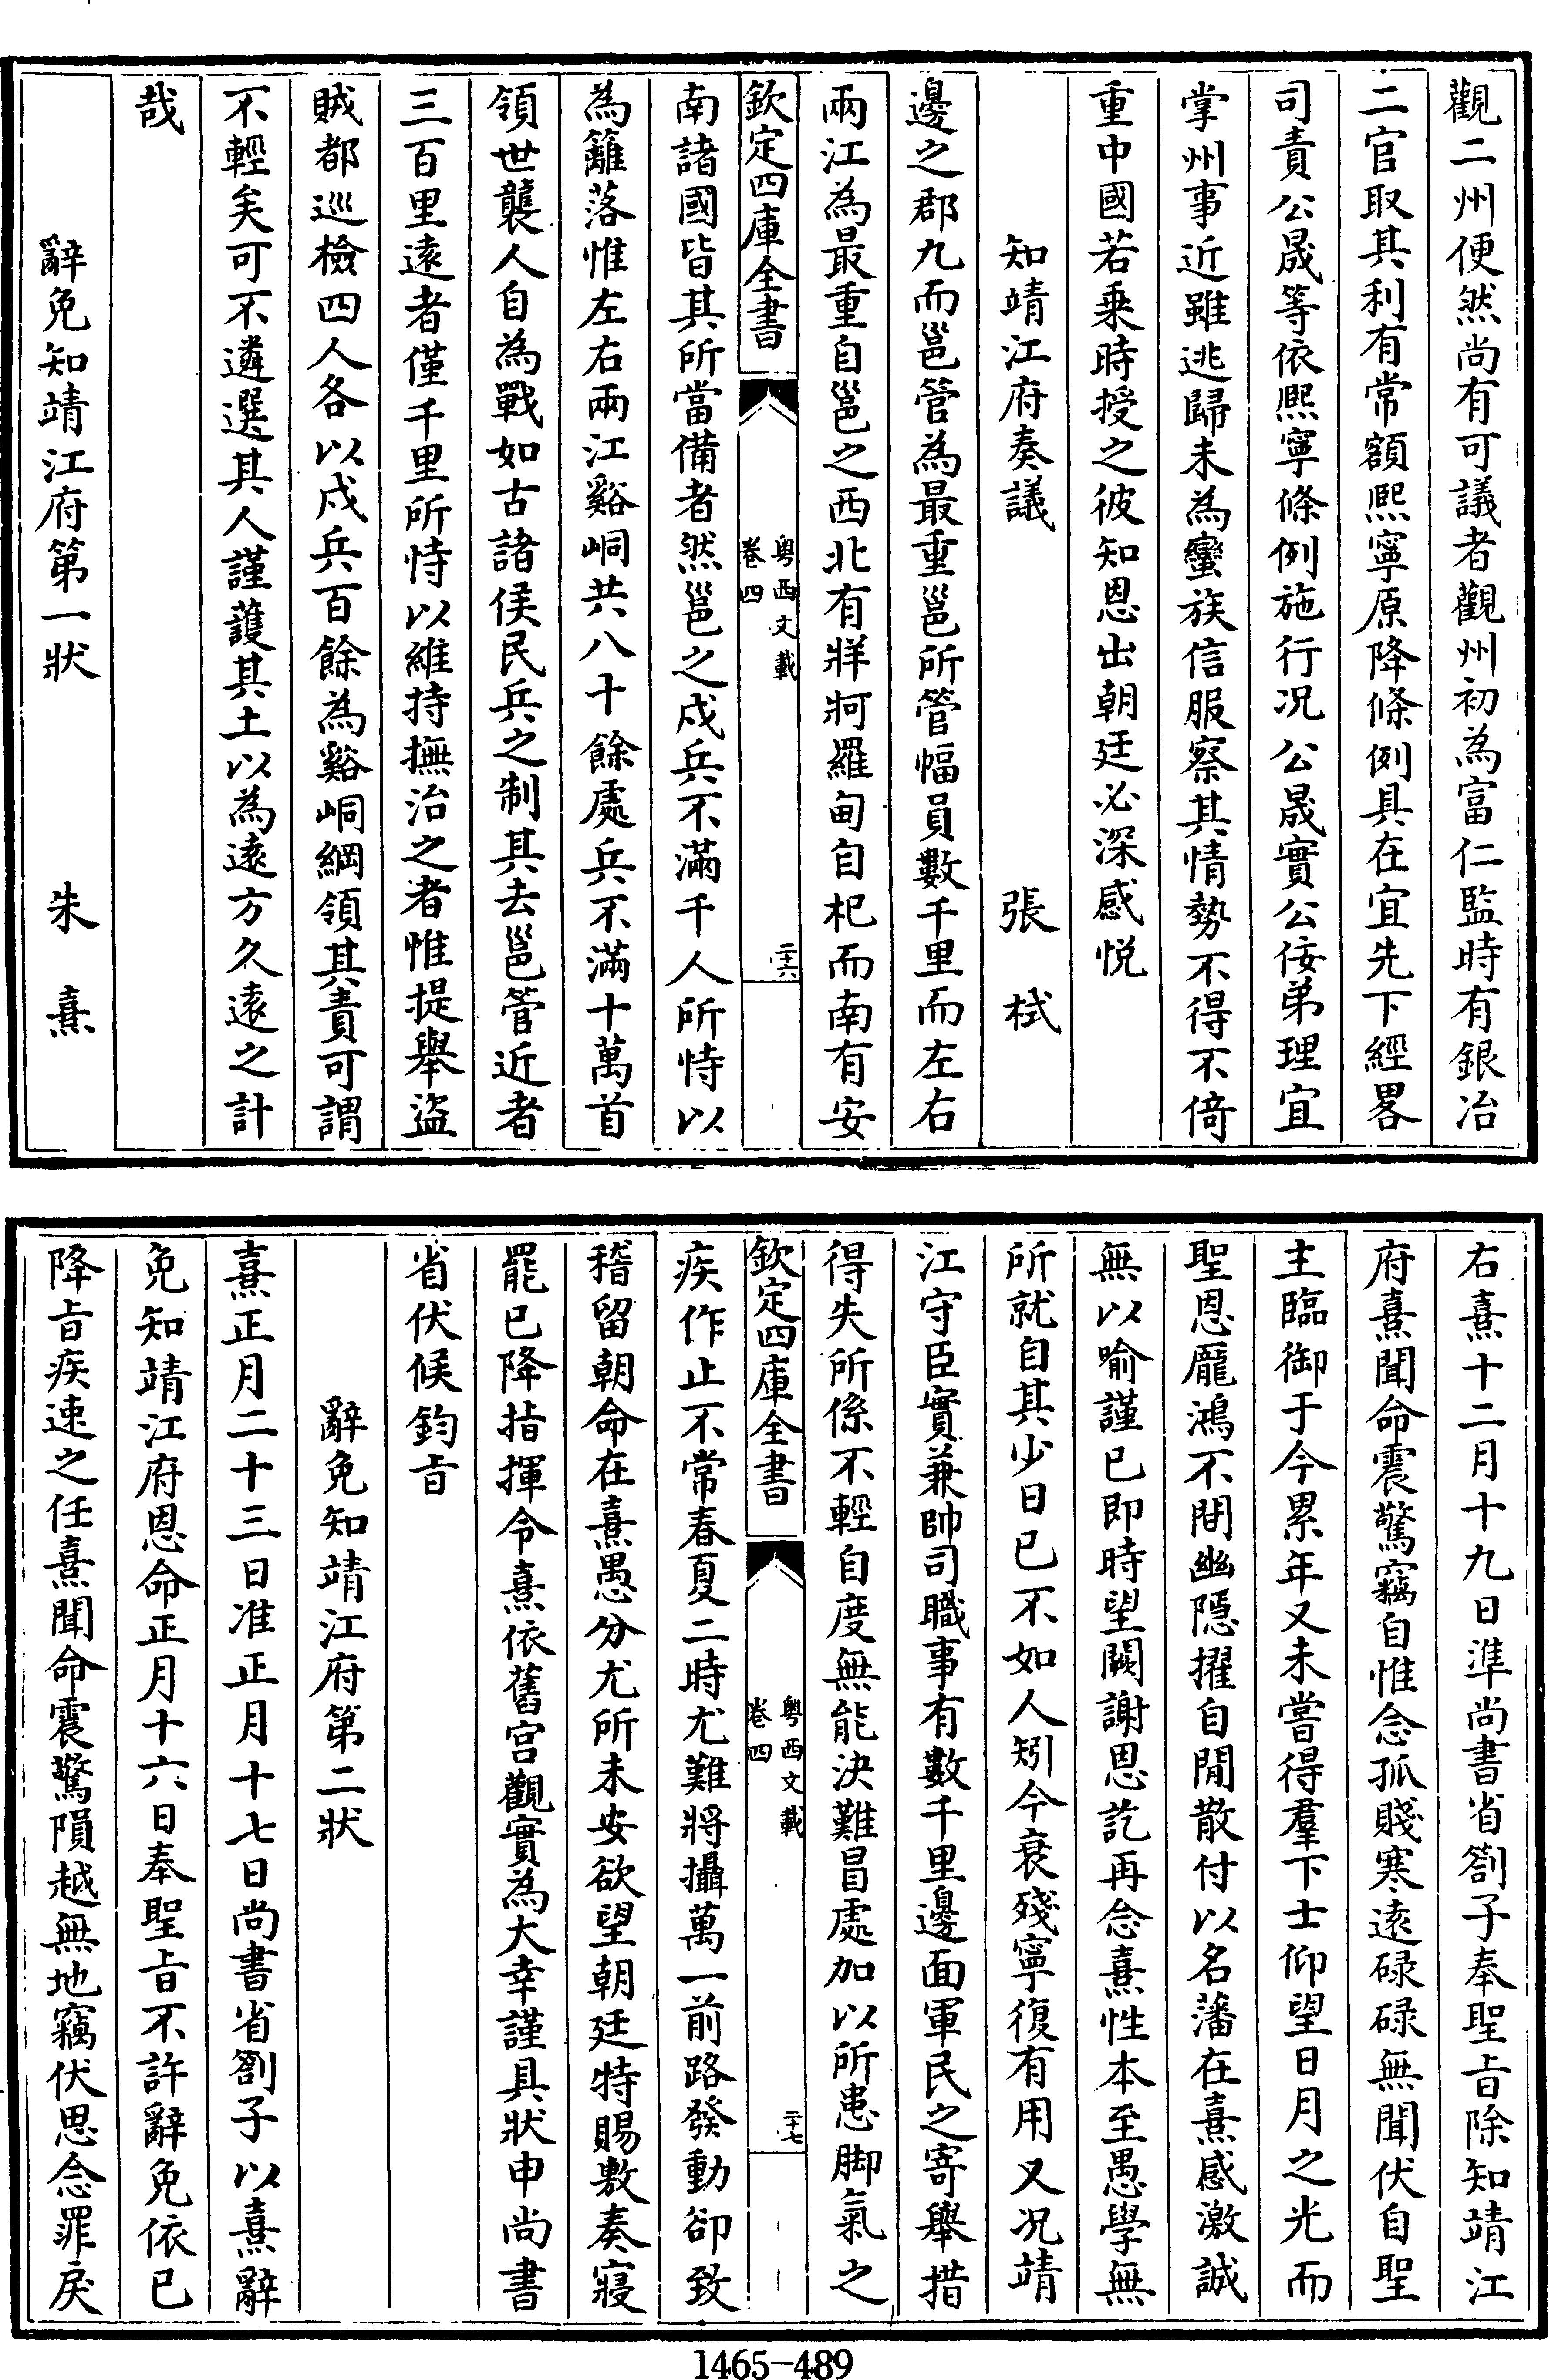 觀二州便然尚有可議者觀州初為富仁監時有銀冶
二官取其利有常額熙寧原降條例具在宜先下經畧
司責公晟等依熙寧條例施行况公晟實公佞弟理宜
掌州事近雖逃歸未為蠻族信服察其情勢不得不倚
重中國若乘時授之彼知恩出朝廷必深感悦
知靖江府奏議　張栻
邊之郡九而邕管為最重邕所管幅員數千里而左右
兩江為最重自邕之西北有牂牁羅甸自杞而南有安
欽定四庫全書
粤西文載
卷四
二十六
南諸國皆其所當備者然邕之戍兵不滿千人所恃以
為籬落惟左右兩江谿峒共八十餘處兵不滿十萬首
領世襲人自為戰如古諸侯民兵之制其去邕管近者
三百里遠者僅千里所恃以維持撫治之者惟提舉盜
賊都巡檢四人各以戍兵百餘為谿峒綱領其責可謂
不輕矣可不遴選其人謹護其土以為遠方久遠之計
哉
辭免知靖江府第一狀　朱熹
右熹十二月十九日準尚書省劄子奉聖旨除知靖江
府熹聞命震驚竊自惟念孤賤寒遠碌碌無聞伏自聖
主臨御于今累年又未嘗得羣下士仰望日月之光而
聖恩龐鴻不間幽隠擢自閒散付以名藩在熹感激誠
無以喻謹已即時望闕謝恩訖再念熹性本至愚學無
所就自其少日已不如人矧今衰殘寧復有用又况靖
江守臣實兼帥司職事有數千里邊面軍民之寄舉措
得失所係不輕自度無能決難冒處加以所患脚氣之
欽定四庫全書
粤西文載
卷四
二十七
疾作止不常春夏二時尤難將攝萬一前路發動卻致
稽留朝命在熹愚分尤所未安欲望朝廷特賜敷奏寢
罷已降指揮令熹依舊宫觀實為大幸謹具狀申尚書
省伏候鈞旨
辭免知靖江府第二狀
熹正月二十三日准正月十七日尚書省劄子以熹辭
免知靖江府恩命正月十六日奉聖旨不許辭免依已
降旨疾速之任熹聞命震驚隕越無地竊伏思念罪戾
1465-489